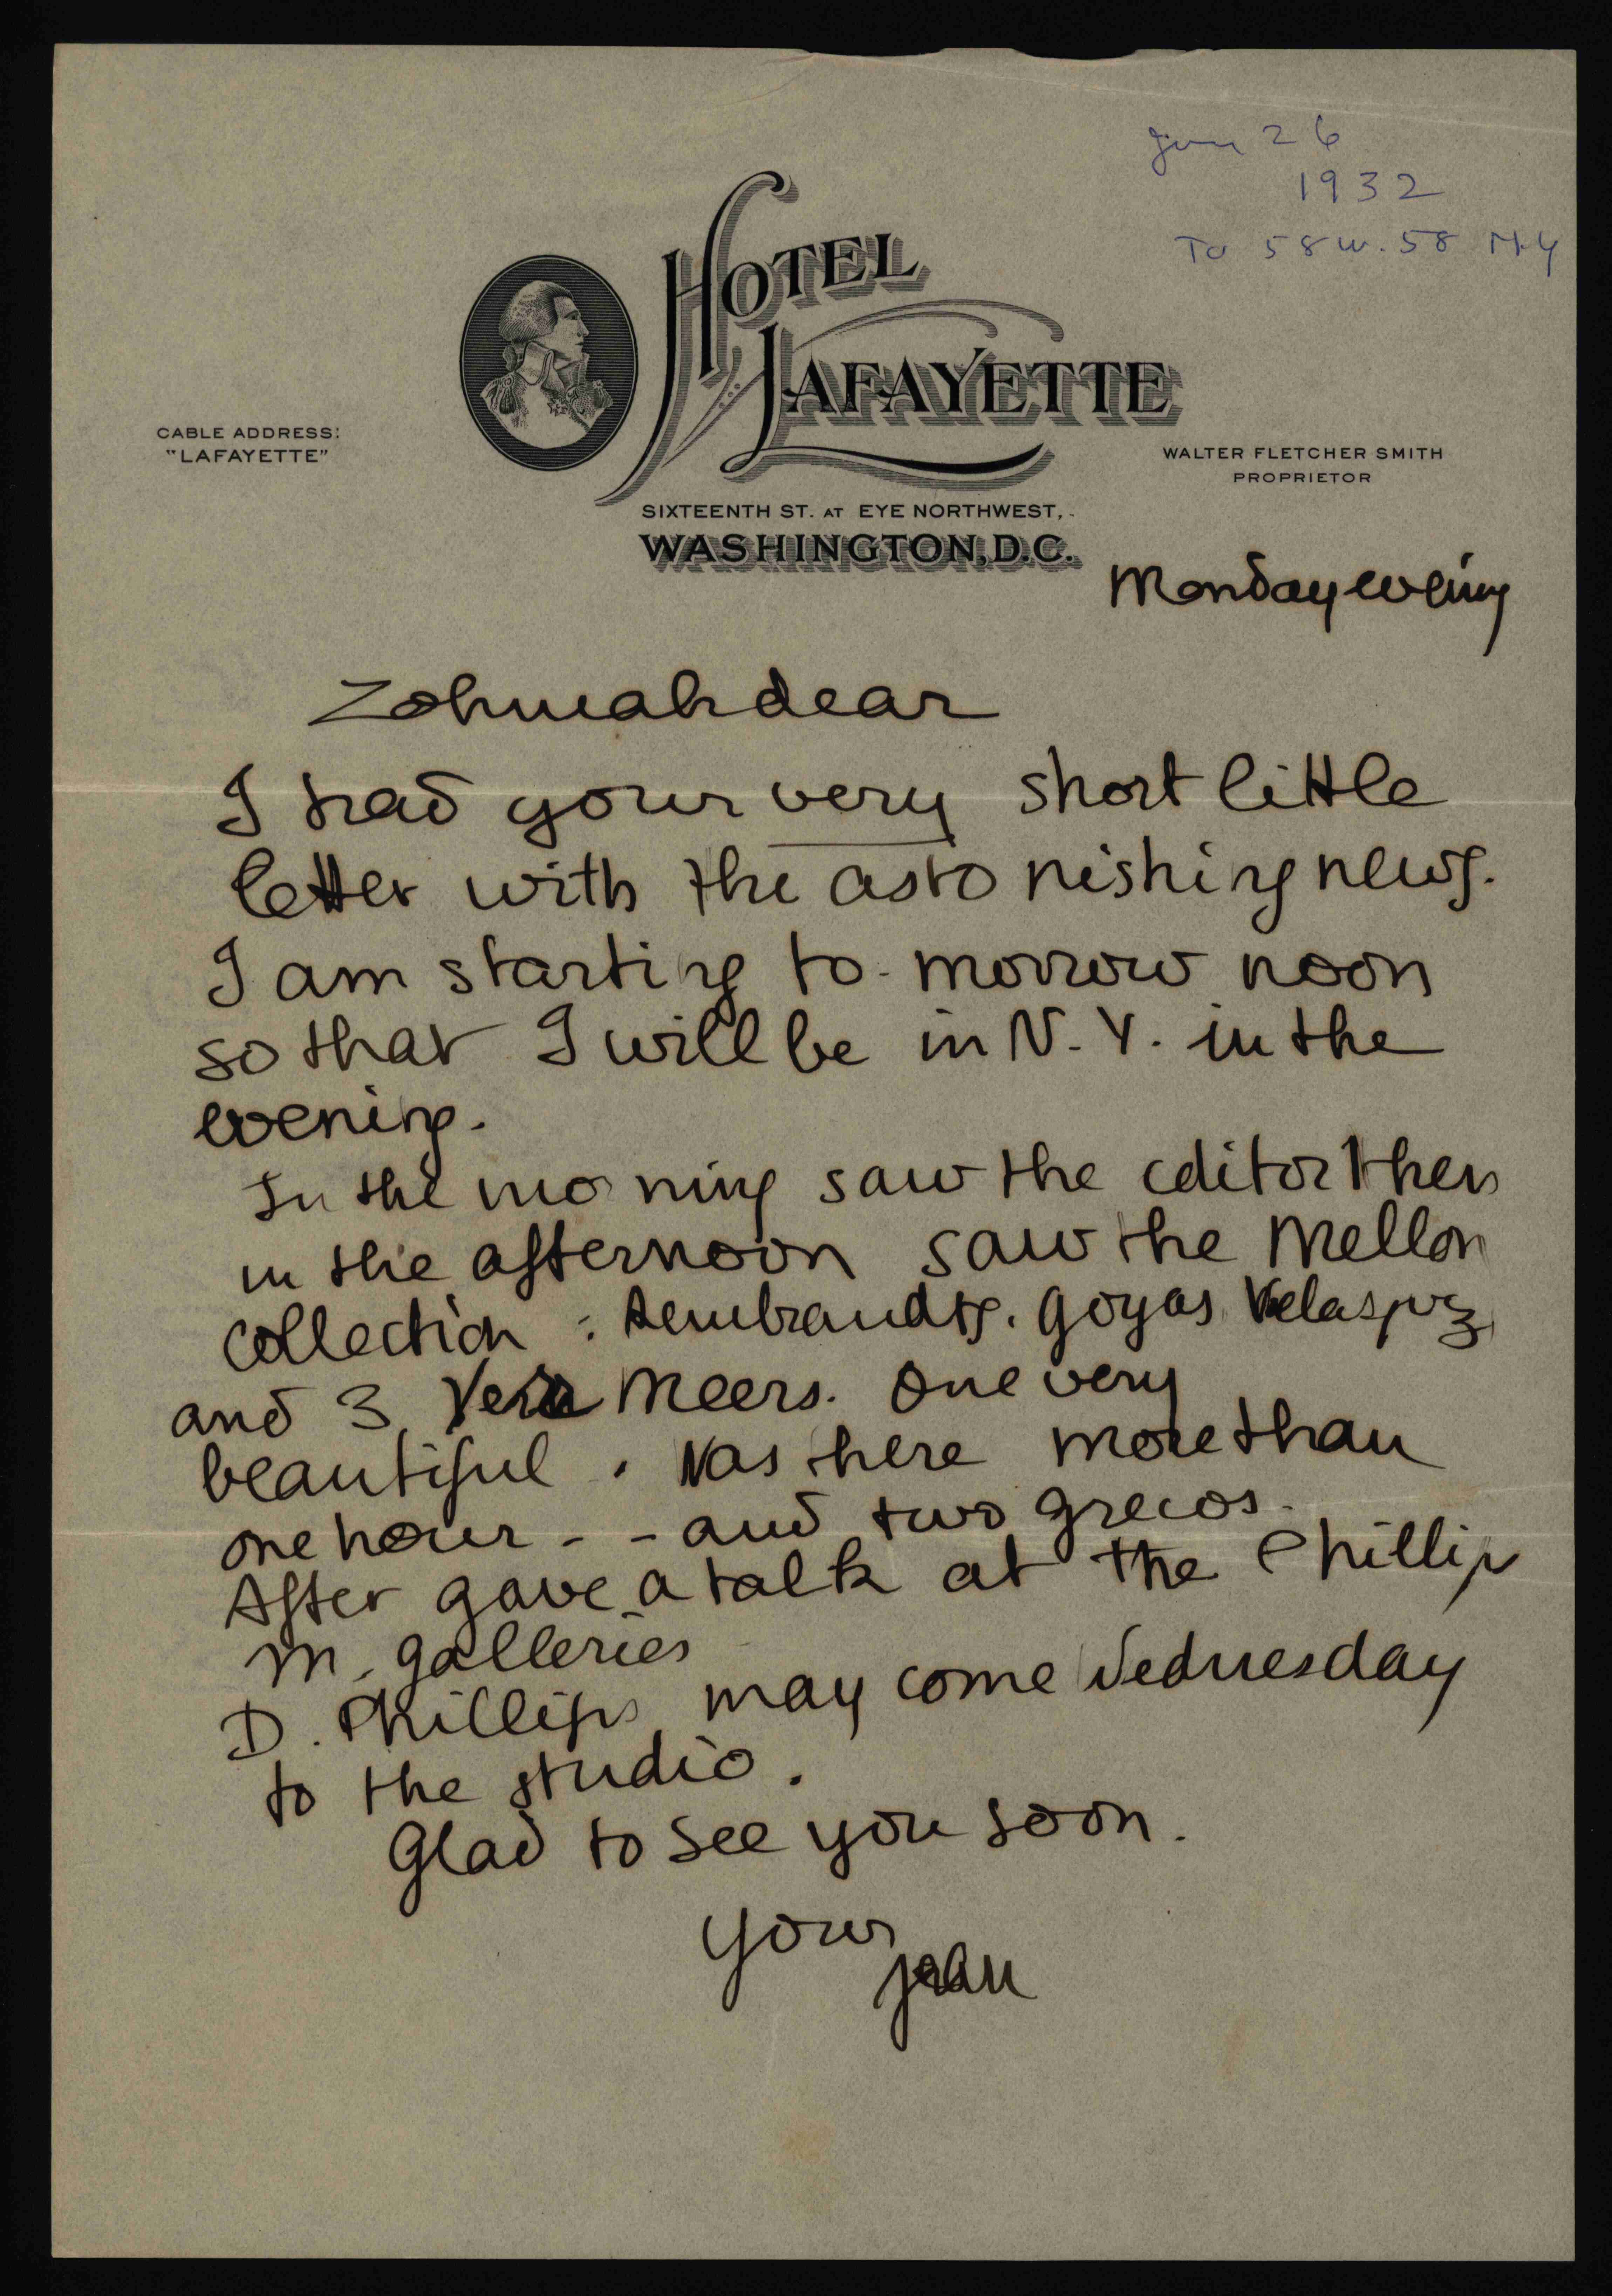 Jan 26
1932
To 58 W. 58 N.Y
HOTEL
LAFAYETTE
CABLE ADDRESS:
"LAFAYETTE"
WALTER FLETCHER SMITH
PROPRIETOR
SIXTEENTH ST. AT EYE NORTHWEST,
WASHINGTON, D.C.
Monday evening
Zohmah dear
I had your very short little
letter with the astonishing news.
I am starting to-morrow noon
so that I will be in N.Y. in the
evening.
In the morning saw the editor then
in the afternoon saw the Mellon
collection : Rembrandts. Goyas Velasquez
and 3 Ver Meers. One very
beautiful . Was there more than
one hour - - and two grecos.
After gave a talk at the Phillip
M. galleries
D. Phillips may come Wednesday
to the studio.
Glad to see you soon.
Your
Jean